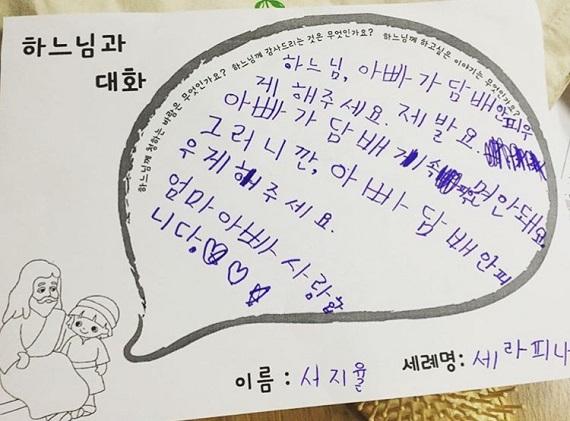 하느님과
대화
하느님께 청하는 바람은 무엇인가요? 하느님께 감사드리는 것은 무엇인가요? 하느님께 하고싶은 이야기는 무엇인가요?
하느님, 아빠가 담배안피우
게 해주세요. 제발요.
아빠가 담배 계속 피면안돼요
그러니깐, 아빠 담배안피
우게해주세요.
엄마아빠 사랑합
니다.♡♡
이름 : 서지율
세례명: 세라피나